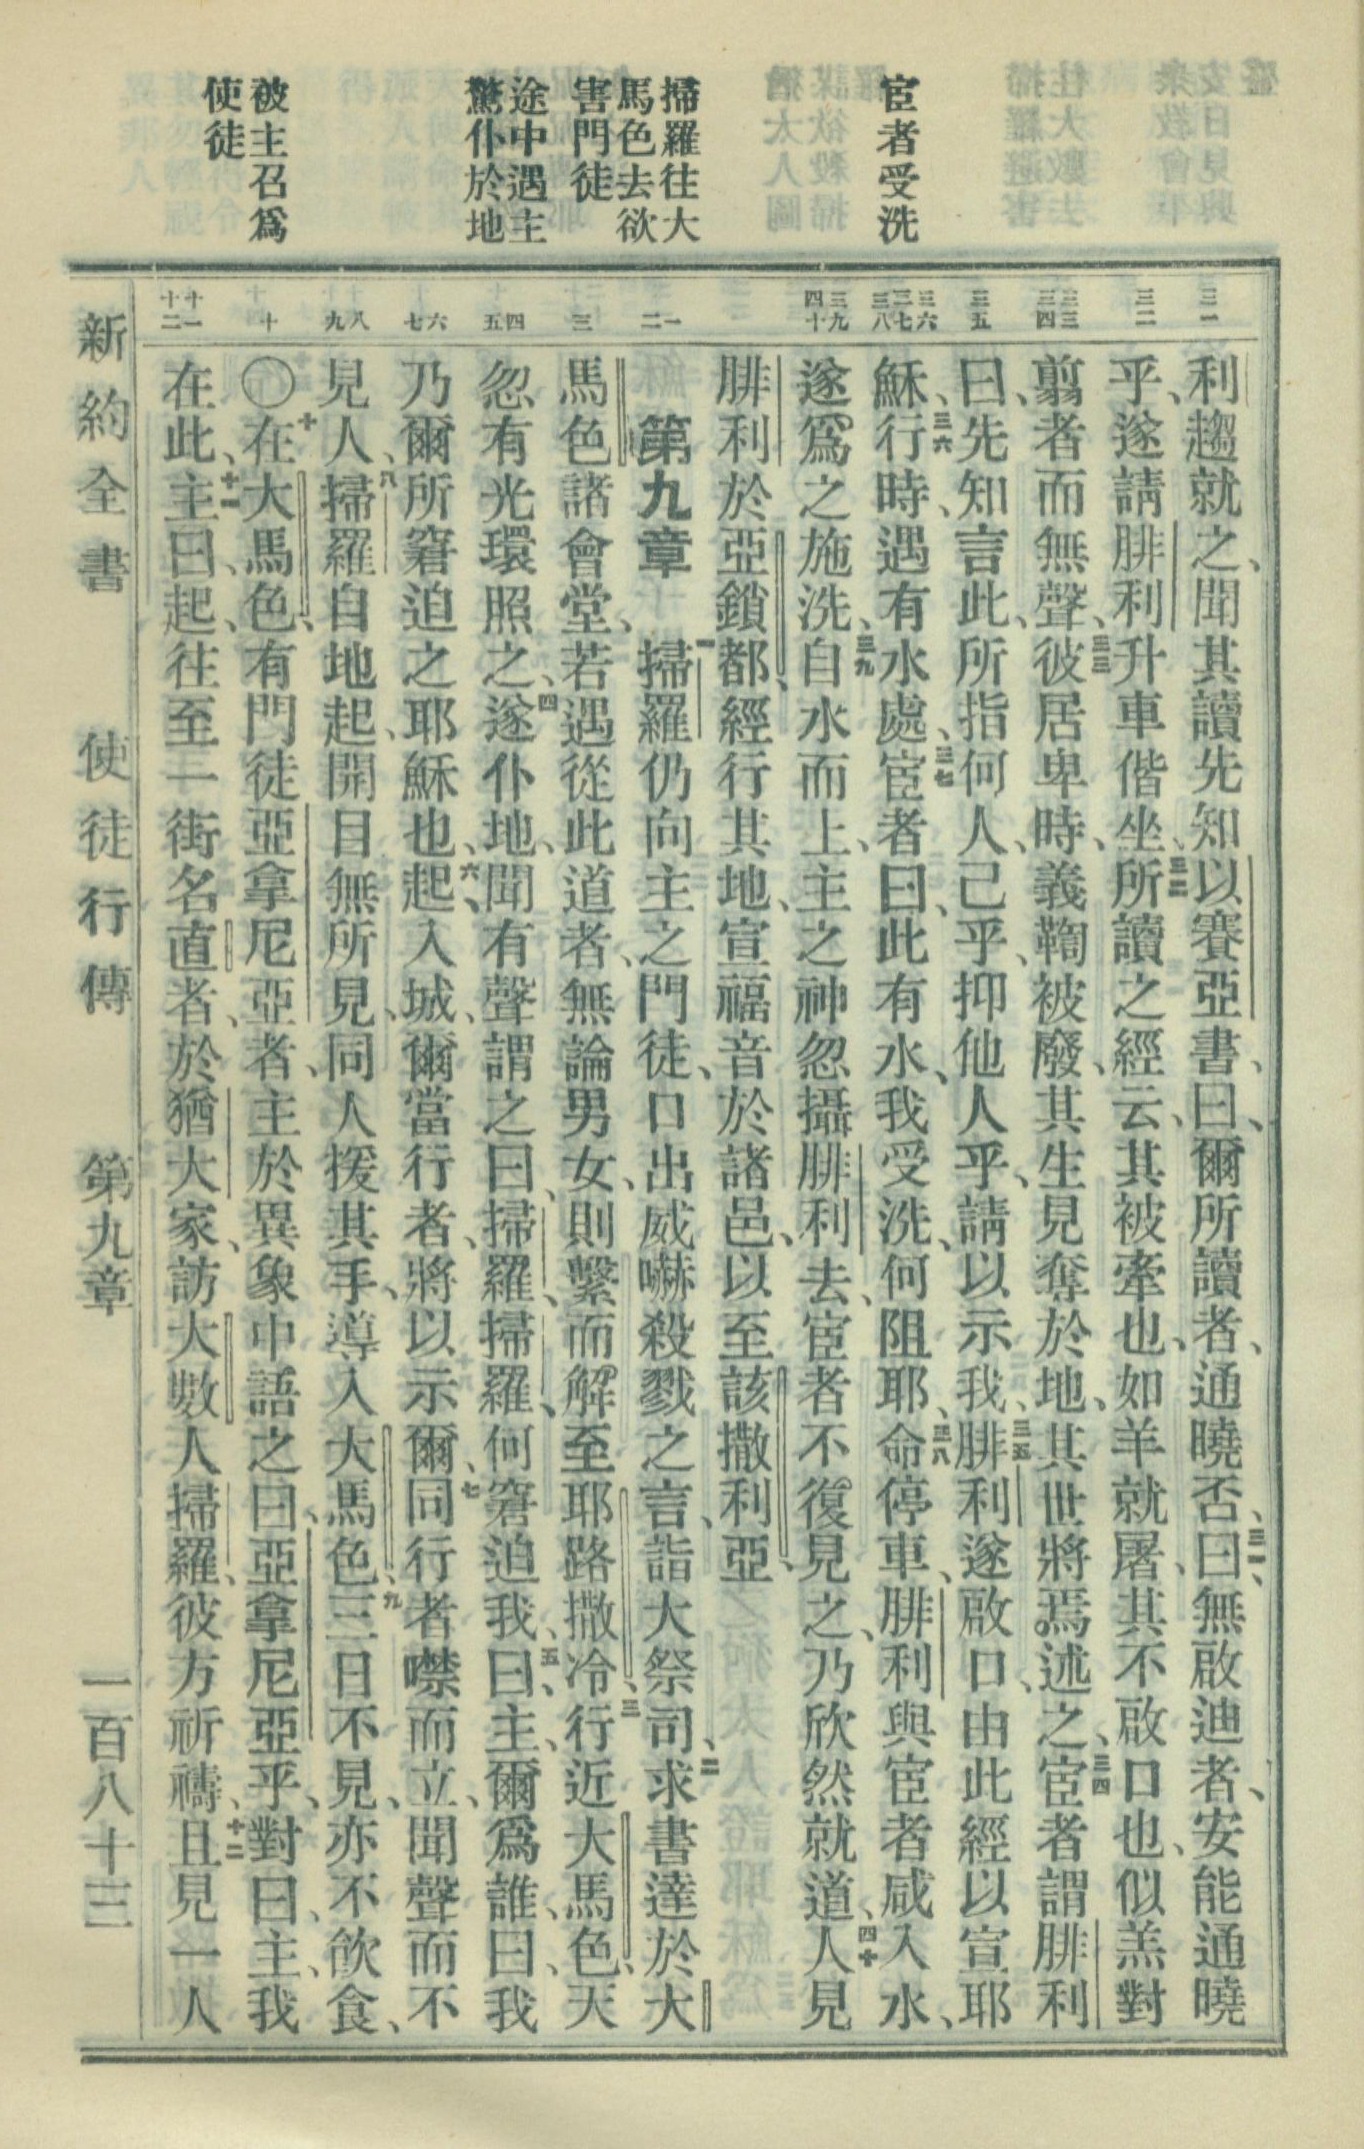 宦者受洗
掃羅往大
馬色去欲
害門徒
途中遇主
驚仆於地
被主召爲
使徒
三一
三二
三三
三四
三五
三六
三七
三八
三九
四十
一
二
三
四
五
六
七
八
九
十
十一
十二
利趨就之、聞其讀先知以賽亞書、曰、爾所讀者、通曉否、三一曰、無啟迪者、安能通曉
乎、遂請腓利升車偕坐、三二所讀之經云、其被牽也、如羊就屠、其不啟口也、似羔對
翦者而無聲、三三彼居卑時、義鞫被廢、其生見奪於地、其世將焉述之、三四宦者謂腓利
曰、先知言此、所指何人、己乎、抑他人乎、請以示我、三五腓利遂啟口、由此經以宣耶
穌、三六行時、遇有水處、三七宦者曰、此有水、我受洗、何阻耶、三八命停車、腓利與宦者咸入水、
遂爲之施洗、三九自水而上、主之神忽攝腓利去、宦者不復見之、乃欣然就道、四十人見
腓利於亞鎖都、經行其地、宣福音於諸邑、以至該撒利亞、
第九章 一掃羅仍向主之門徒、口出威嚇殺戮之言、詣大祭司、二求書達於大
馬色諸會堂、若遇從此道者、無論男女、則繫而解至耶路撒冷、三行近大馬色、天
忽有光環照之、四遂仆地、聞有聲謂之曰、掃羅、掃羅、何窘迫我、五曰、主、爾爲誰、曰、我
乃爾所窘迫之耶穌也、六起、入城、爾當行者、將以示爾、七同行者噤而立、聞聲而不
見人、八掃羅自地起、開目無所見、同人援其手、導入大馬色、九三日不見、亦不飲食、
〇十在大馬色、有門徒亞拿尼亞者、主於異象中語之曰、亞拿尼亞乎、對曰、主、我
在此、十一主曰、起、往至一街名直者、於猶大家、訪大數人掃羅、彼方祈禱、十二且見一人
新約全書 使徒行傳 第九章 一百八十三